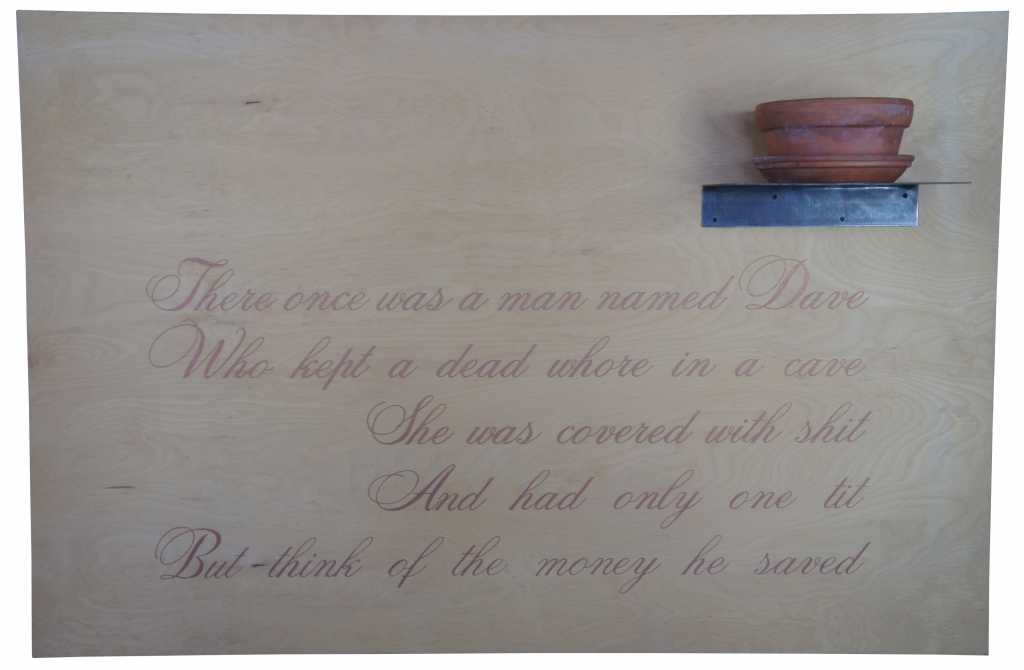 There once was a man named Dave
Who kept a dead whore in a cave
She was covered with shit
And had only one tit
But-think of the money he saved